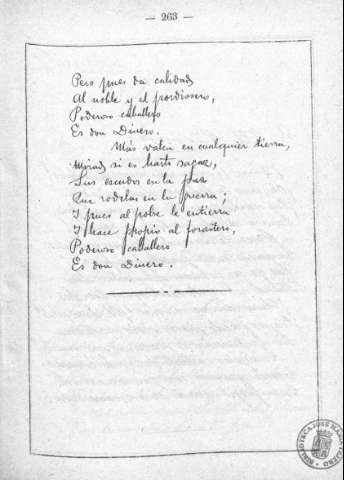 — 263 —
Pero pues da calidad
Al noble y el pordiosero,
Poderoso caballero
Es don Dinero.
Más valen en cualquier tierra,
Mirad si es harto sagaz,
Sus escudos en la paz
Que rodelas en la guerra;
Y pues al pobre le entierra
Y hace propio al forastero,
Poderoso caballero
Es don Dinero.
BIBLIOTECA JOSÉ MARÍA